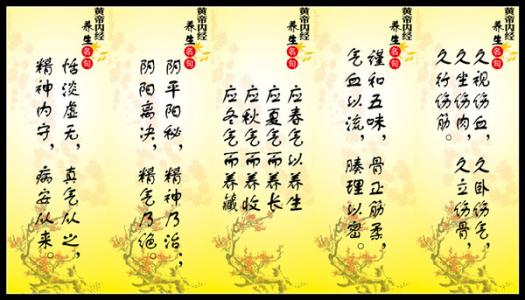 黄帝内经
养生名句
久视伤血，久卧伤气，
久坐伤肉，久立伤骨，
久行伤筋。
黄帝内经
养生名句
谨和五味，骨正筋柔，
气血以流，腠理以密。
黄帝内经
养生名句
应春气以养生
应夏气而养长
应秋气而养收
应冬气而养藏
黄帝内经
养生名句
阴平阳秘，精神乃治，
阴阳离决，精气乃绝。
黄帝内经
养生名句
恬淡虚无，真气从之，
精神内守，病安从来。